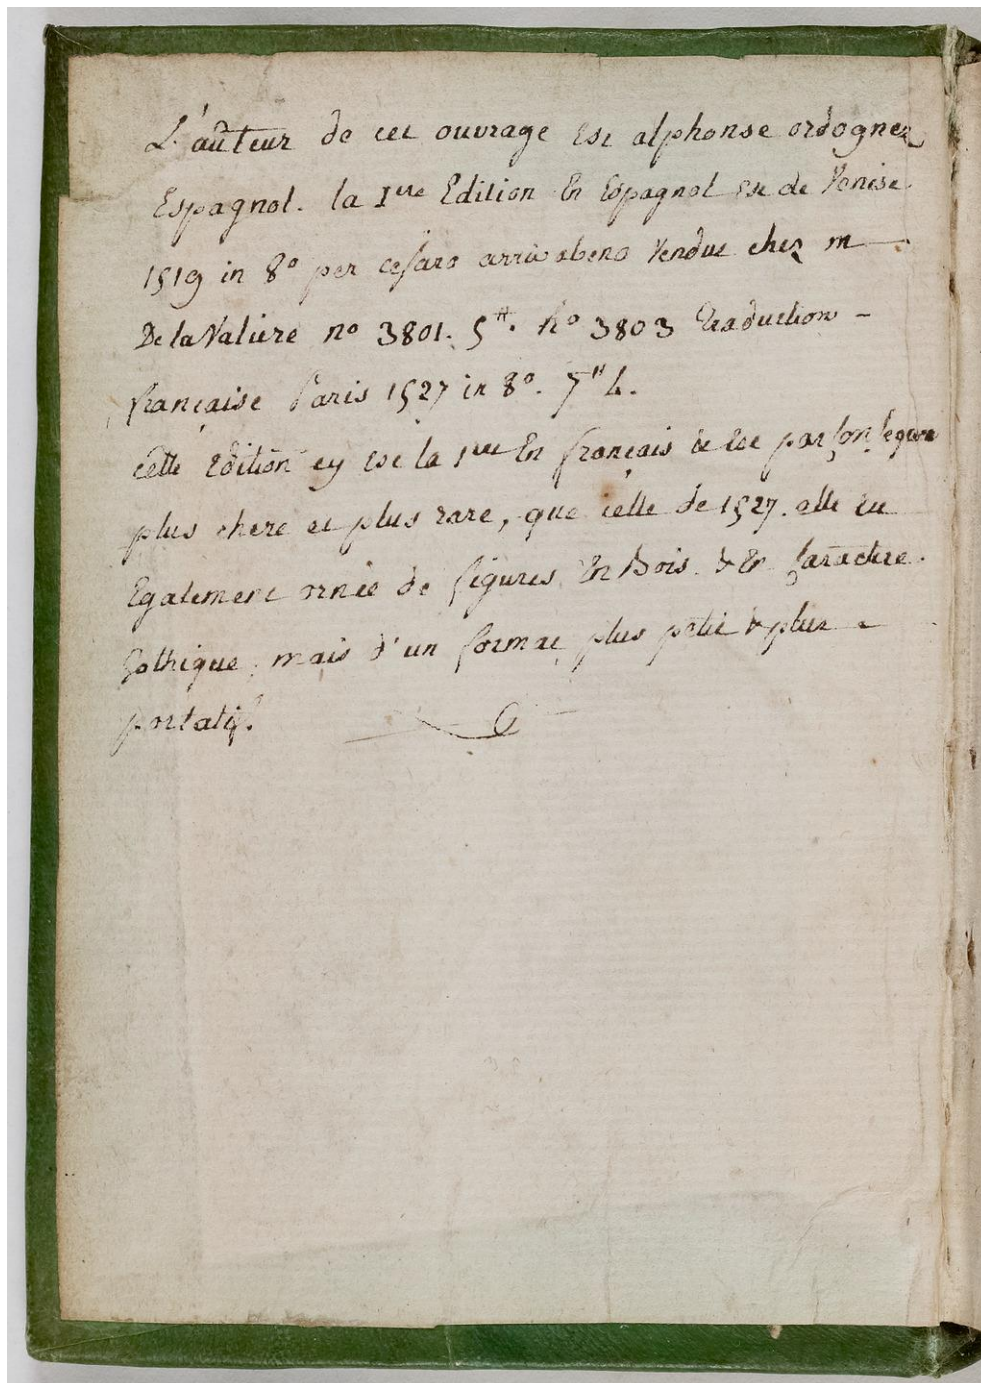 L'auteur de cet ouvrage est alphonse ordognez
Espagnol. la 1ere Edition En Espagnol est de Venise
1519 in 8º per cesaro arrivabeno Vendue chez m
De la Valiere nº 3801. 5#. nº 3803 traduction -
française Paris 1527 in 8º. 7# 4.
cette Edition cy est la 1ere En français & est par
plus chere et plus rare, que celle de 1527. elle est
Egalement ornée de figures En Bois & En Caractere
Gothique, mais d'un format plus petit & plus -
portatif.